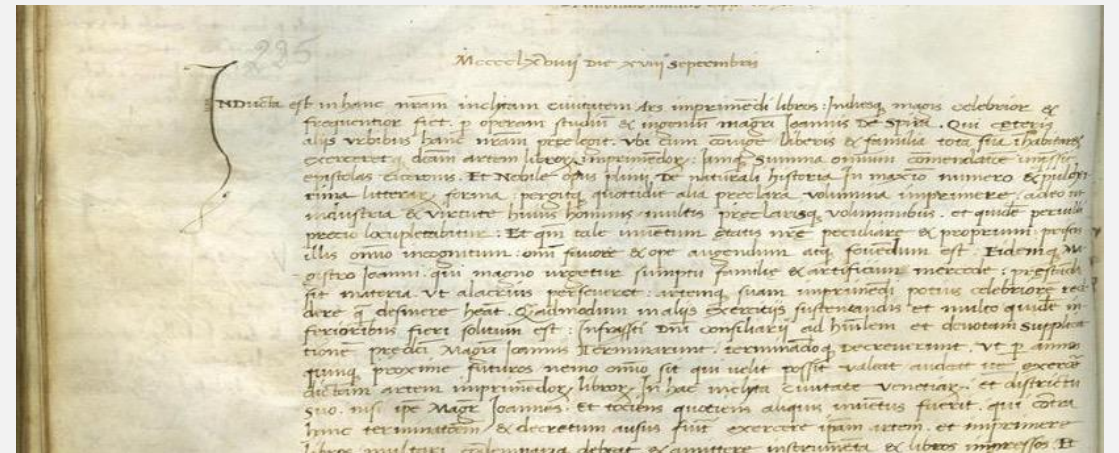 225
Mcccclxviiij die xviij septembris
INDucta est in hanc nram inclitam ciuitatem Ars imprimedi libros: Indiesq magis celebrior &
frequentior fiet. p operam studiu & ingeniu magri Joannis De Spira. Qui ceteris
alijs vrbibus hanc nram preelegit. vbi cum coiuge liberis & familia tota sua ihabitaret
exerceretq dcam artem libror imprimedor: Iamq summa omnium comendatione impssit
epistolas Ciceronis. Et Nobile opus plinij De naturali historia In maxio numero & pulcher
rima litterar forma. pergitq quottidie alia preclara volumina imprimere. adeo ut
industria & virtute huius hominis multis preclarisq voluminibus. et quide peruili
precio locupletabitur. Et qm tale inuetum etatis nre peculiare & proprium. priscis
illis omnio incognitum. omi fauore & ope augendum atq fouedum est. Eidemq Ma
gistro Joanni. qui magno urgetur sumptu familie & artificum mercede. prestada
sit materia. vt alacrius perseueret. artemq suam imprimedi potius celebriore red
dere q desinere heat. Quadmodum in alijs exercitijs sustentandis et multo quide in
ferioribus fieri solitum est. Infrascti Dni consiliarij ad huilem et deuotam supplica
tione predicti Magri Joannis Terminarunt. terminadoq Decreuerunt. Vt p annos
quinq proxime futuros nemo omnio sit qui uelit possit valeat audeat ue exercere
dictam artem imprimedor libror In hac inclita Ciuitate venetiar. et districtu
suo. nisi ipe Magr Joannes. Et tociens quotiens aliquis inuetus fuerit. qui contra
hanc terminatoem & decretum ausus fuit exercere ipam artem. et imprimere
libros multari condemnariq debeat & amittere instrumeta & libros impressos. Et